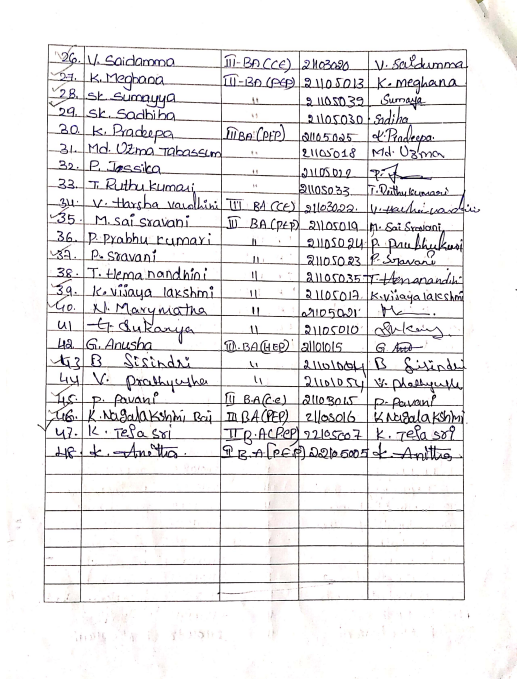 26. V. Saidamma III-BA(CE) 21103020 V. Saidamma
27. K. Meghana III-BA(PEP) 21105013 K. meghana
28. SK. Sumayya " 21105039 Sumaya
29. SK. Sadhiha " 21105030 Sadiha
30. K. Pradeepa III BA(PEP) 21105025 K. Pradeepa.
31. Md. Uzma Tabassum " 21105018 Md. Uzma
32. P. Jessika "
33. T. Ruthu kumari " 21105033 T. Ruthu kumari
34. V. Harsha vardhini III BA(CE) 21103022
35. M. sai sravani III BA(PEP) 21105019 M. Sai Sravani,
36. P. Prabhu kumari " 21105024
37. P. Sravani " 21105023 P. Sravani
38. T. Hema nandhini " 21105035 T. Hemanandini
39. K. vijaya lakshmi " 21105017 K. vijaya lakshmi
40. N. Marymatha " 21105021
41 G. Sukanya " 21105010
42. G. Anusha III-BA(HEP) 21101015 G
43 B Sisindri " B Sisindri
44 V. prathyusha " 21101054
45. P. Pavani III BA(C.e) 21103015 P. Pavani
46. K. Nagalakshmi Bai III BA(PEP) 21105016 K Nagalakshmi
47. K. Teja sri II B.A(PEP) 22105007 K. Teja srI
48. K. Anitha II B.A(PEP) 22105005 K. Anitha